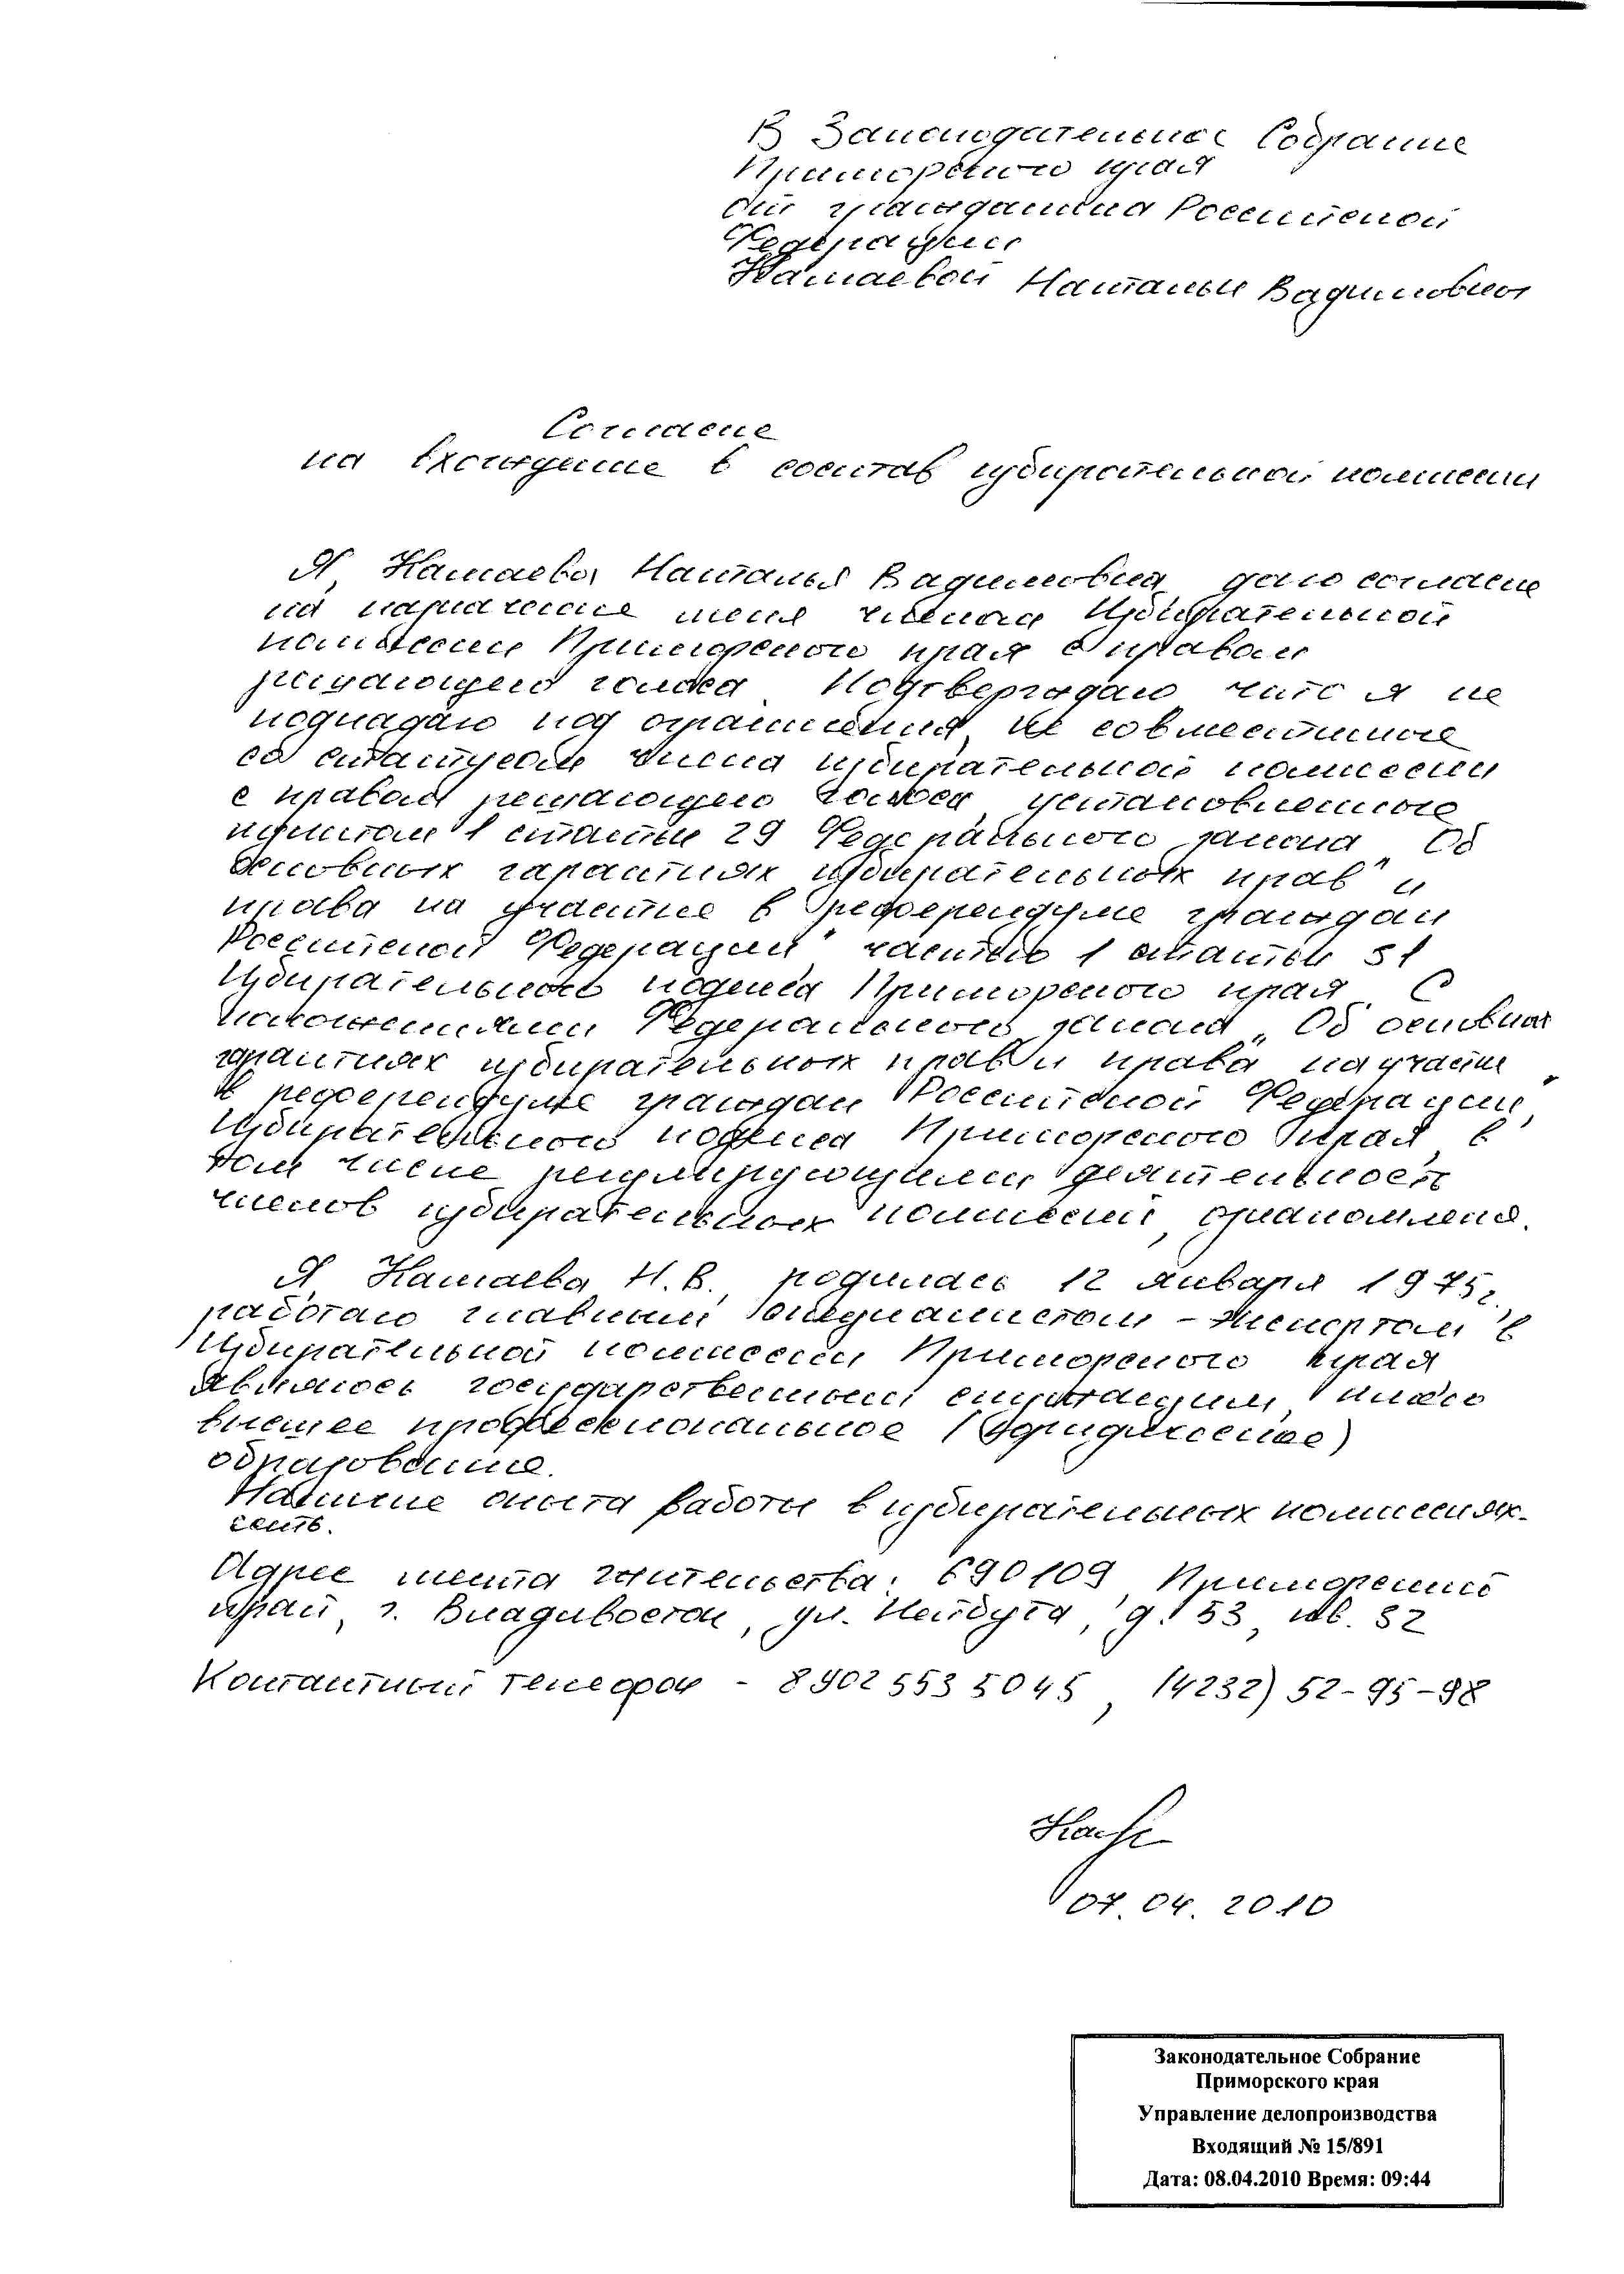 В Законодательное Собрание
Приморского края
от гражданина Российской
Федерации
Камаевой Натальи Вадимовны
Согласие
на вхождение в состав избирательной комиссии
Я, Камаева Наталья Вадимовна, даю согласие
на назначение меня членом Избирательной
комиссии Приморского края с правом
решающего голоса. Подтверждаю, что я не
подпадаю под ограничения, не совместимые
со статусом члена избирательной комиссии
с правом решающего голоса, установленные
пунктом 1 статьи 29 Федерального закона "Об
основных гарантиях избирательных прав и
права на участие в референдуме граждан
Российской Федерации" частью 1 статьи 31
Избирательного кодекса Приморского края. С
положениями Федерального закона "Об основных
гарантиях избирательных прав и права на участие
в референдуме граждан Российской Федерации",
Избирательного кодекса Приморского края, в
том числе регулирующими деятельность
членов избирательных комиссий, ознакомлена.
Я, Камаева Н.В., родилась 12 января 1975г.,
работаю главным специалистом-экспертом в
Избирательной комиссии Приморского края
являюсь государственным служащим, имею
высшее профессиональное (юридическое)
образование.
Наличие опыта работы в избирательных комиссиях-
есть.
Адрес места жительства: 690109 Приморский
край, г. Владивосток, ул. Нейбута, д. 53, кв. 32
Контактный телефон - 89025535045, (4232) 52-95-98
07.04.2010
Законодательное Собрание
Приморского края
Управление делопроизводства
Входящий № 15/891
Дата: 08.04.2010 Время: 09:44